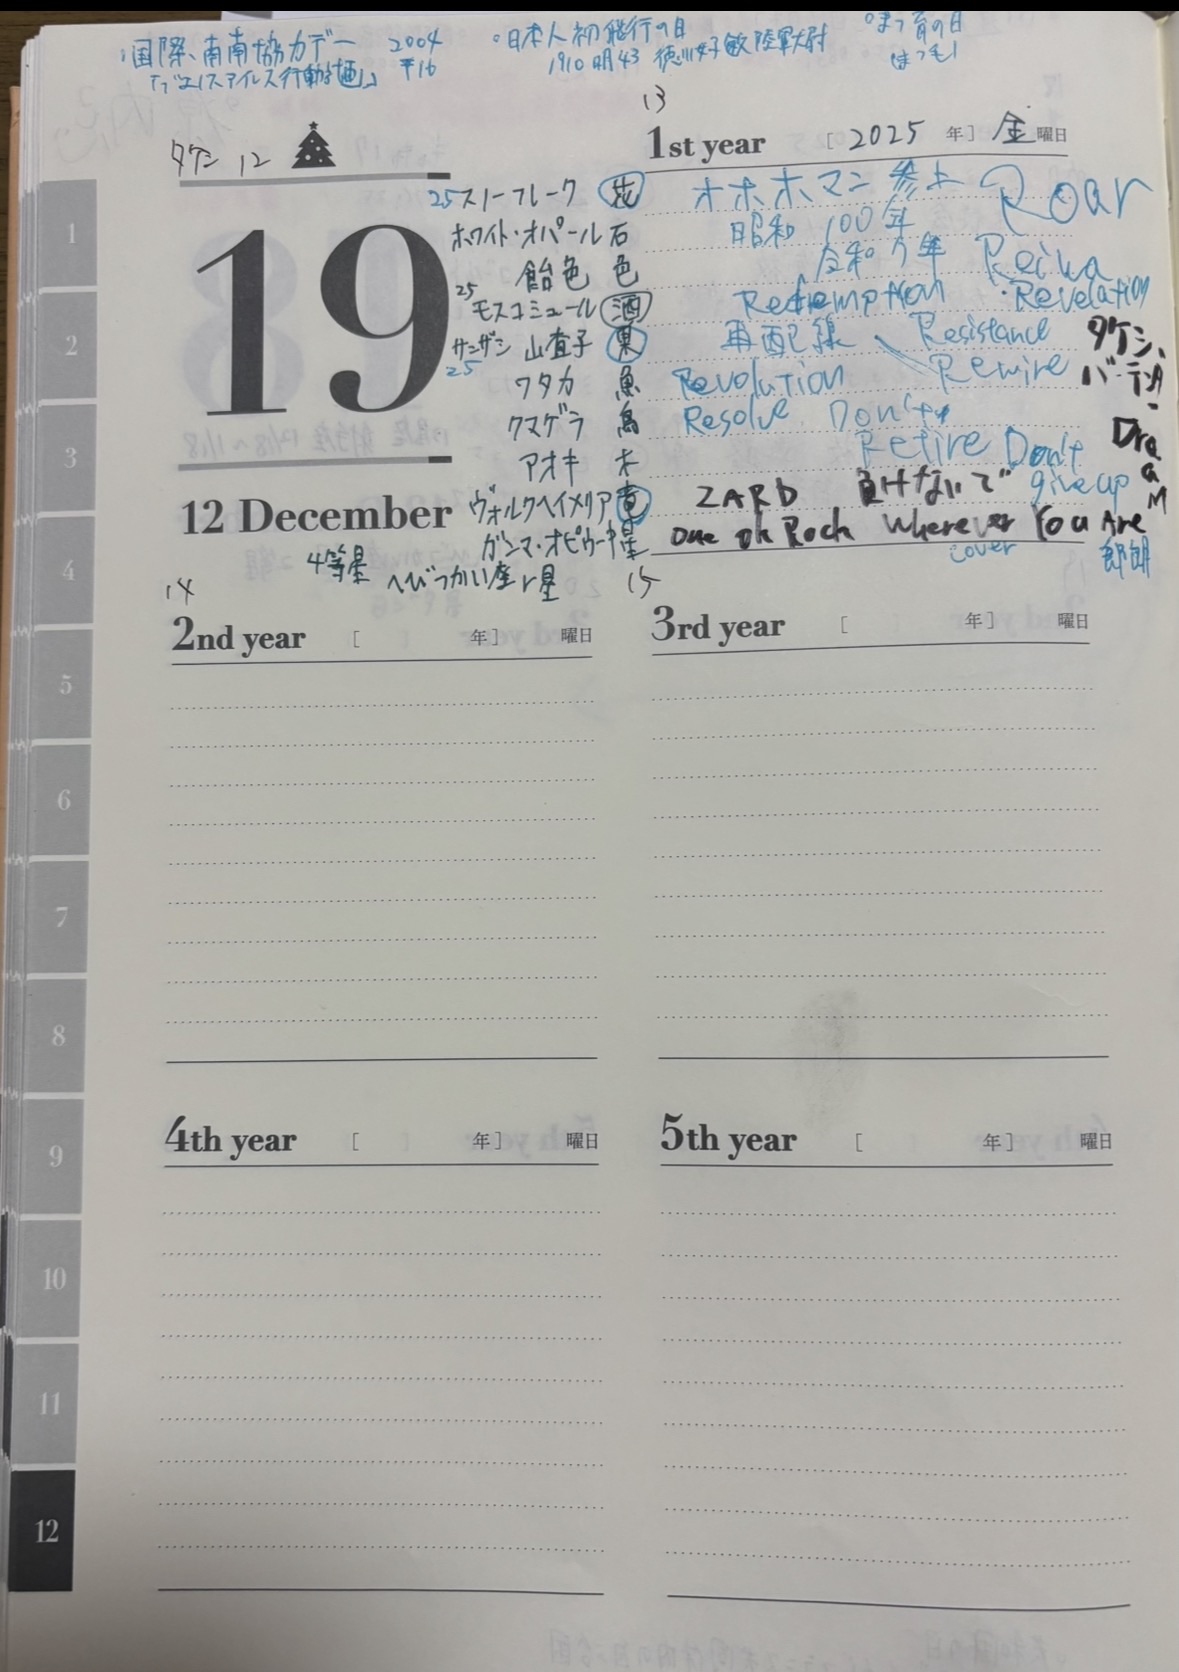 ・国際、南南協力デー 2004
「ブエノスアイレス行動計画」 平16
・日本人初飛行の日
1910 明43 徳川好敏 陸軍大尉
まつ育の日
まつ1
タケシ 12
19
12 December
25 スノーフレーク 花
ホワイト・オパール 石
飴色 色
25 モスコミュール 酒
サンザシ 山査子 果
25
ワタカ 魚
クマゲラ 鳥
アオキ 木
ヴォルクヘイメリア 竜
ガンマ・オピウー 星
4等星 へびつかい座γ星
13
1st year [ 2025 年] 金曜日
オホホマン 参上 Roar
昭和 100年
令和7年 Reiwa
Redemption ・Revelation
再配線 Resistance
Revolution Rewire
Resolve. Don't
Retire Don't
give up
ZARD 負けないで
One ok Rock Wherever You Are
cover 郎朗
タケシ、
バーテンダー
Dream
14
2nd year [ 年] 曜日
15
3rd year [ 年] 曜日
4th year [ 年] 曜日
5th year [ 年] 曜日
1
2
3
4
5
6
7
8
9
10
11
12